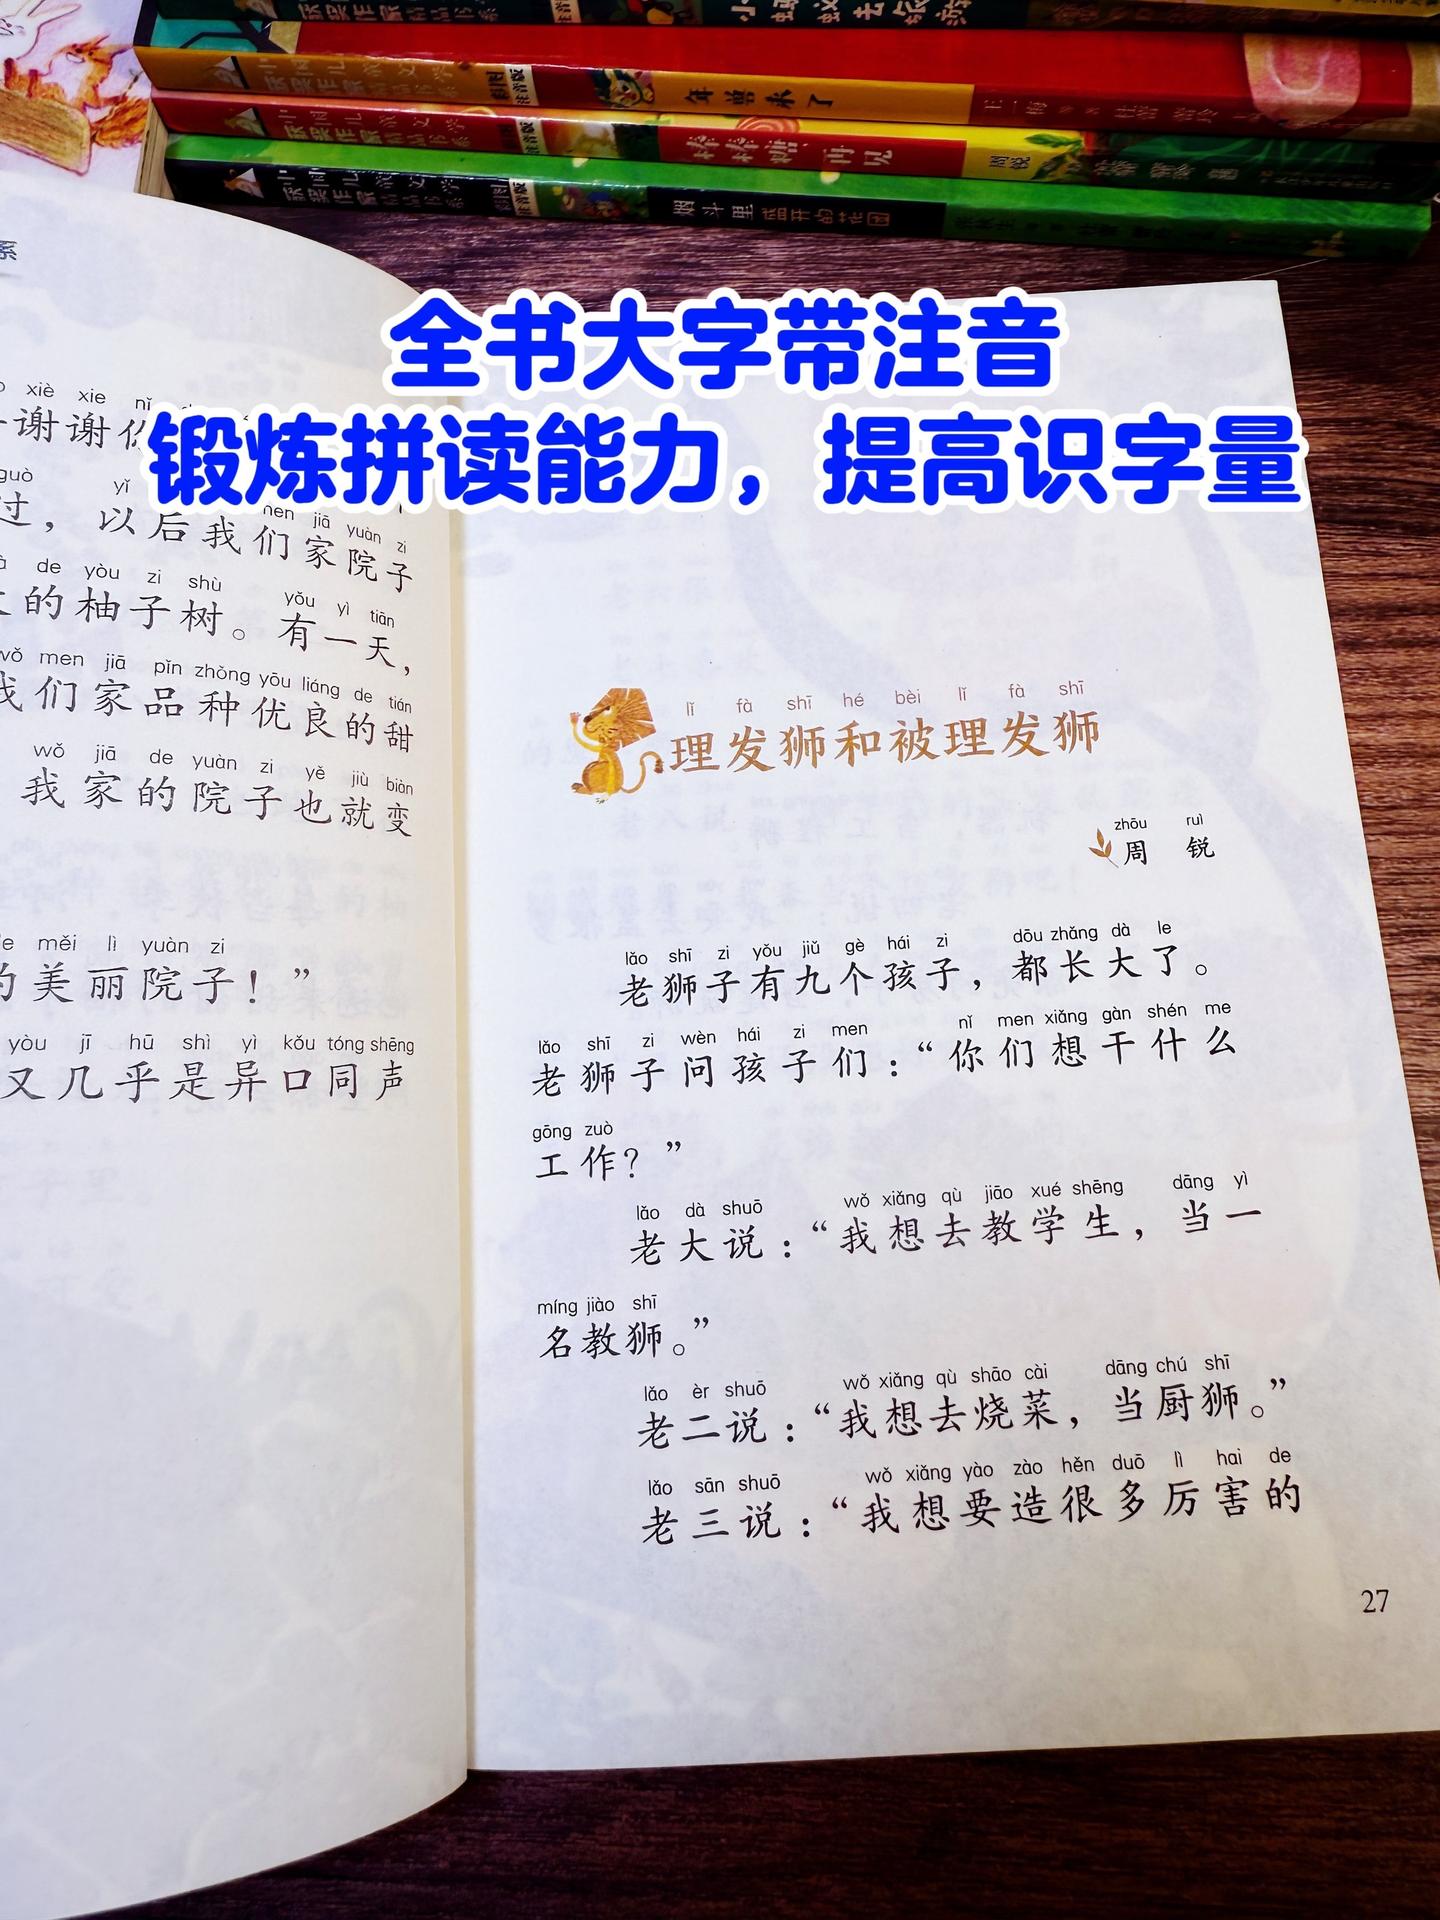 年兽来了
棒棒糖,再见
周锐
烟斗里盛开的花园
系
全书大字带注音
锻炼拼读能力，提高识字量
xiè xie nǐ
谢谢你
guò yǐ
过，以后我们家院子
men jiā yuàn zi
de yòu zi shù yǒu yì tiān
的柚子树。有一天，
wǒ men jiā pǐn zhǒng yōu liáng de tián
我们家品种优良的甜
wǒ jiā de yuàn zi yě jiù biàn
我家的院子也就变
de měi lì yuàn zi
的美丽院子！”
yòu jī hū shì yì kǒu tóng shēng
又几乎是异口同声
lǐ fà shī hé bèi lǐ fà shī
理发狮和被理发狮
zhōu ruì
周 锐
lǎo shī zi yǒu jiǔ gè hái zi dōu zhǎng dà le
老狮子有九个孩子，都长大了。
lǎo shī zi wèn hái zi men nǐ men xiǎng gàn shén me
老狮子问孩子们：“你们想干什么
gōng zuò
工作？”
lǎo dà shuō wǒ xiǎng qù jiāo xué shēng dāng yì
老大说：“我想去教学生，当一
míng jiào shī
名教狮。”
lǎo èr shuō wǒ xiǎng qù shāo cài dāng chú shī
老二说：“我想去烧菜，当厨狮。”
lǎo sān shuō wǒ xiǎng yào zào hěn duō lì hai de
老三说：“我想要造很多厉害的
27